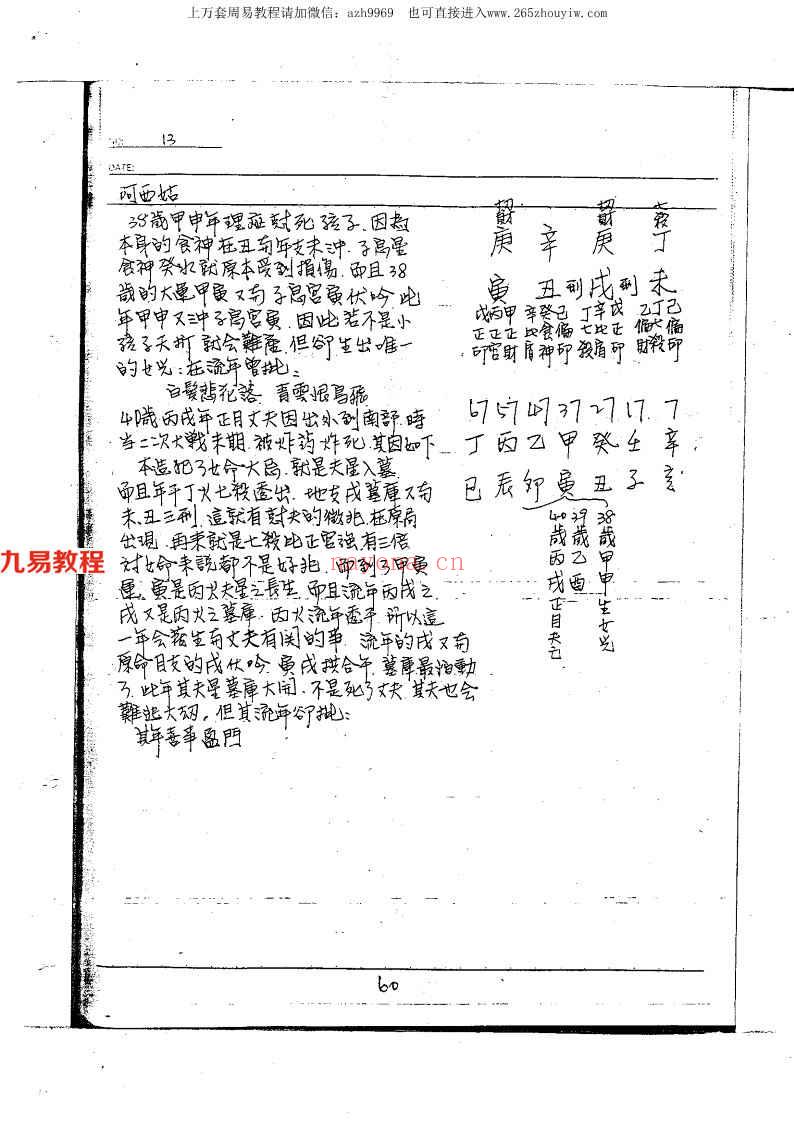 上万套周易教程请加微信：azh9969 也可直接进入www.265zhouyiw.com
NO. 13
DATE:
阿西姑
38歲甲申年理應尅死孩子,因為
本身的食神在丑有年支未沖,子息星
食神癸水就原本受到損傷,而且38
歲的大運甲寅又有子息宮寅伏吟,此
年甲申又沖子息宮寅,因此若不是小
孩子夭折,就會難產,但卻生出唯一
的女兒:在流年曾批:
白髮悲花落 青雲恨鳥飛
40歲丙戌年正月丈夫因出外到南部,時
當二次大戰末期,被炸葯炸死,其因如下
本造犯了女命一大忌,就是夫星入墓,
而且年干丁火七殺透出,地支戌墓庫又有
未、丑三刑,這就有尅夫的徵兆,在原局
出現,再來就是七殺比正官強,有三倍
對女命來說都不是好兆,而到了甲寅
運,寅是丙火夫星之長生,而且流年丙戌之
戌又是丙火之墓庫,丙火流年透干,所以這
一年會發生有丈夫有関的事,流年的戌又有
原命月支的戌伏吟,寅戌拱合午,墓庫最怕動
了,此年其夫星墓庫大開,不是死了丈夫,其夫也會
難逃大劫,但其流年卻批:
其年喜事盈門
庚 辛 庚 丁
寅 丑 刑 戌 刑 未
戊正印 丙正官 甲正財 辛比肩 癸食神 己偏印 丁七殺 辛比肩 戊正印 乙偏財 丁七殺 己偏印
67 57 47 37 27 17 7
丁 丙 乙 甲 癸 壬 辛
巳 辰 卯 寅 丑 子 亥
38歲甲申生女兒
39歲乙酉
40歲丙戌正月夫亡
九易教程
60